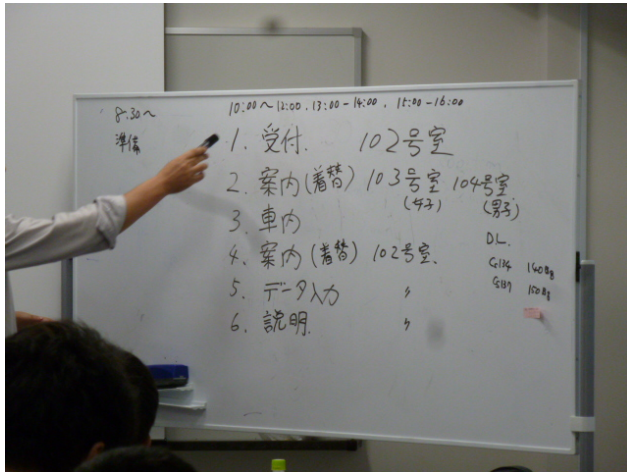 8:30〜
準備
10:00〜12:00, 13:00-14:00, 15:00-16:00
1. 受付. 102号室
2. 案内(着替) 103号室 104号室
(女子) (男子)
3. 車内
4. 案内(着替) 102号室.
5. データ入力 〃
6. 説明. 〃
DL.
Cs134 140Bq
Cs137 150Bq